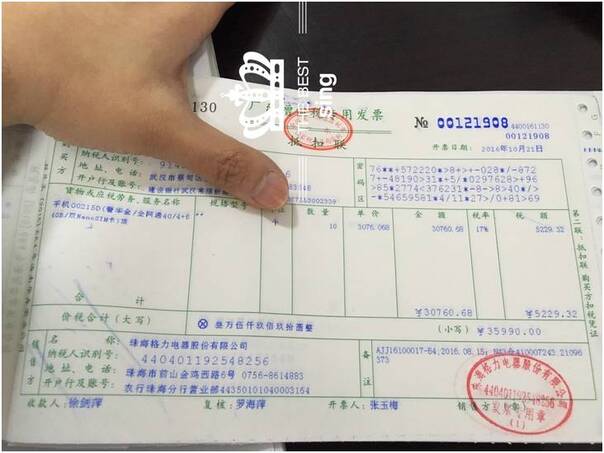 THE BEST
Sing
130
用发票
№ 00121908
4400161130
00121908
抵扣联
开票日期: 2016年10月21日
购买方
纳税人识别号:
地址、电话:
开户行及账号:
密码区
76***+572220*>8+>+-028*/-872
7+-48190>31*+5/*0297628>+96
>85*2774<376231-8->8>40*/>
-*54659581*4/11*27>/0+81>69
货物或应税劳务、服务名称
规格型号
数量
单价
金额
税率
税额
手机G0215D(奢华金/全网通4G/4+6
4GB/双NanoSIM卡)顶
10
3076.068
30760.68
17%
5229.32
合计
￥30760.68
￥5229.32
价税合计(大写)
⊗ 叁万伍仟玖佰玖拾圆整
(小写) ￥35990.00
第二联:抵扣联 购买方扣税凭证
销售方
名称: 珠海格力电器股份有限公司
纳税人识别号: 440401192548256
地址、电话: 珠海市前山金鸡西路6号 0756-8614883
开户行及账号: 农行珠海分行营业部44350101040003164
备注
373
收款人: 徐剑萍
复核: 罗海萍
开票人: 张玉梅
珠海格力电器股份有限公司
440401192548256
发票专用章
(1)